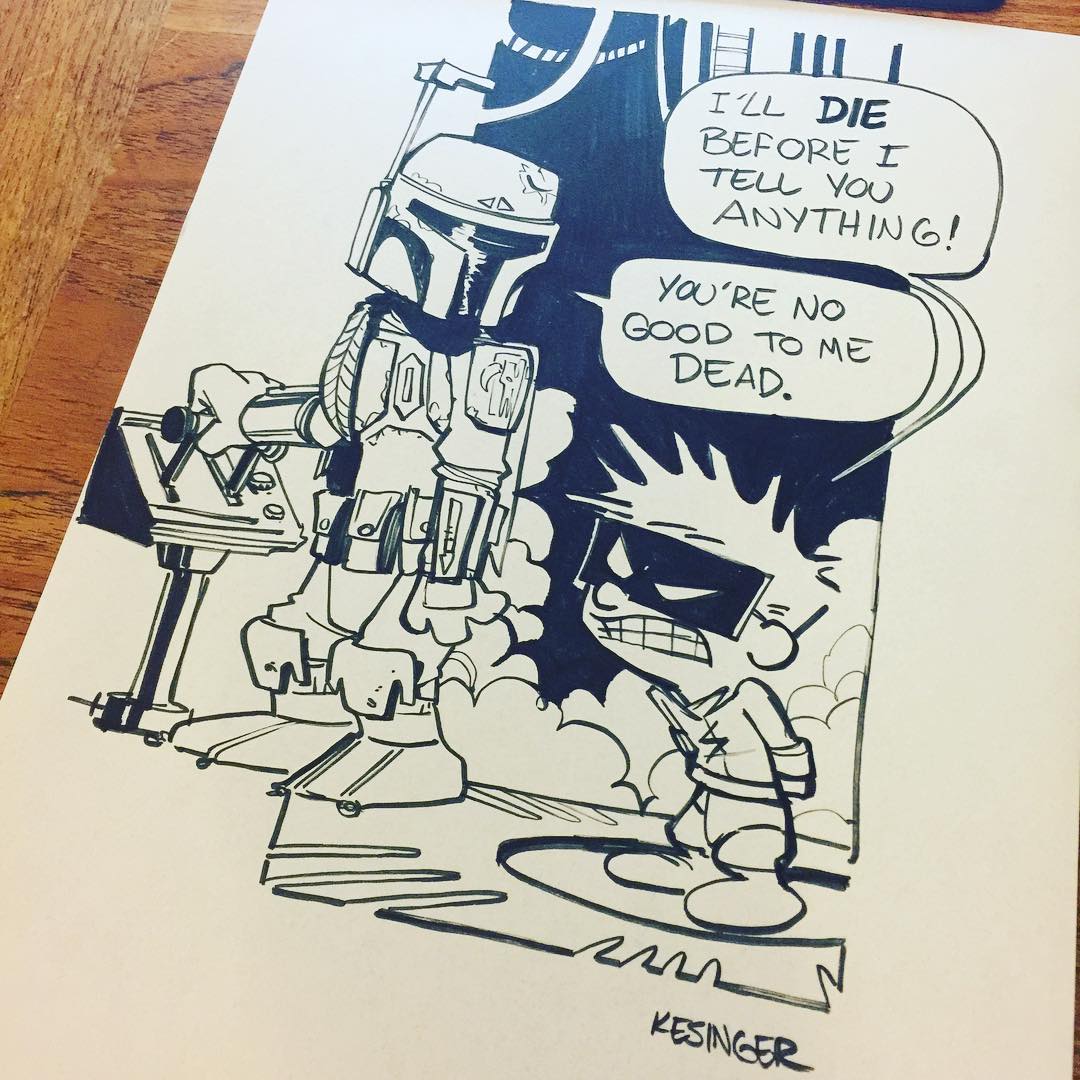 I'LL DIE
BEFORE I
TELL YOU
ANYTHING!
YOU'RE NO
GOOD TO ME
DEAD.
KESINGER